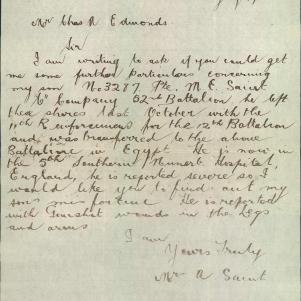 Mr Chas R Edmonds
Sir
I am writing to ask if you could get
me some further particulars concerning
my son No 3287 Pte. M. E. Saint
"C" Company 52nd Battalion he left
these shores last October with the
11th Reinforcement for the 12th Battalion
and was transferred to the above
Battalion in Egypt. He is now in
the 5th Southern Hospital,
England, he is reported severe so I
would like you to find out my
sons misfortune He is reported
with Gunshot wounds in the Legs
and arms
I am
Yours Truly
Mrs A Saint